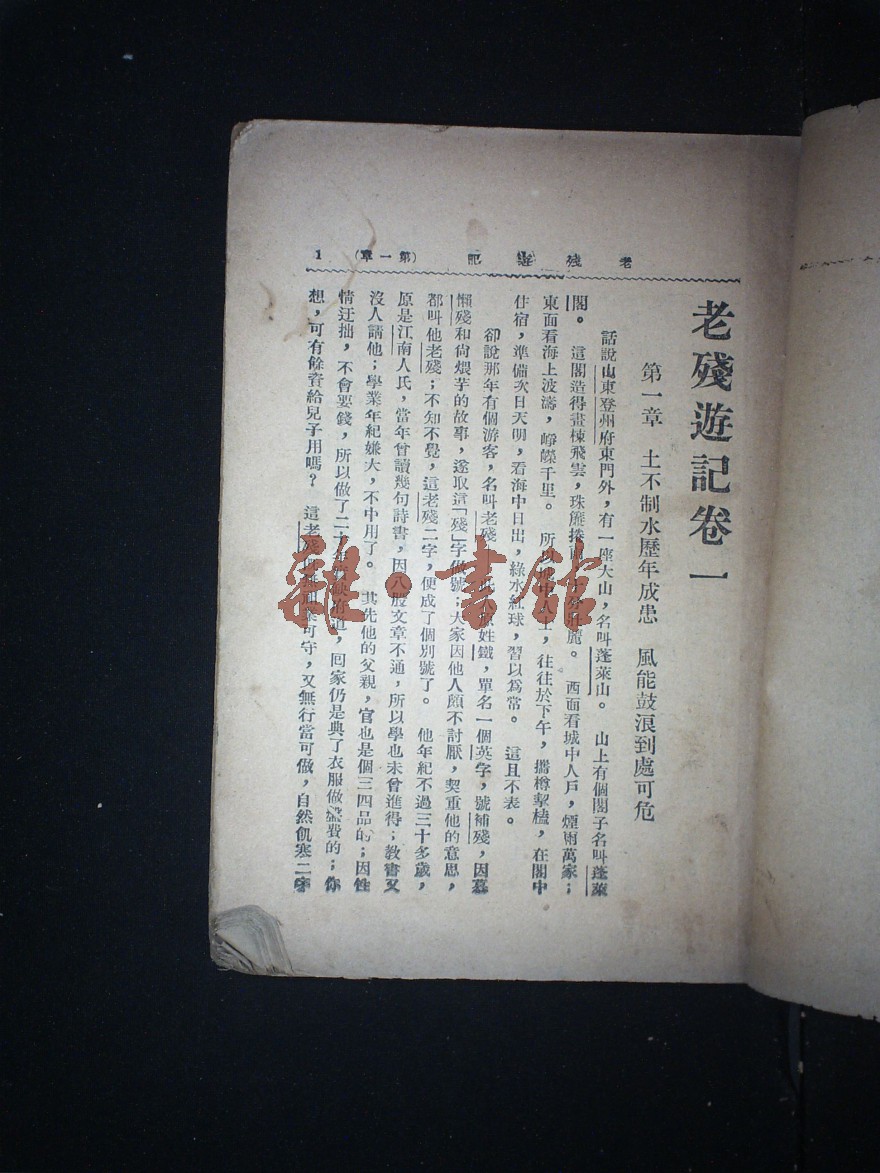 老殘遊記 (第一章) 1
老殘遊記卷一
第一章 土不制水歷年成患 風能鼓浪到處可危
話說山東登州府東門外，有一座大山，名叫蓬萊山。 山上有個閣子名叫蓬萊
閣。 這閣造得畫棟飛雲，珠簾捲雨，十分壯麗。 西面看城中人戶，煙雨萬家；
東面看海上波濤，崢嶸千里。 所以城中人士，往往於下午，攜樽挈榼，在閣中
住宿，準備次日天明，看海中日出，綠水紅球，習以為常。 這且不表。
卻說那年有個游客，名叫老殘。 此人原姓鐵，單名一個英字，號補殘，因慕
懶殘和尚煨芋的故事，遂取這「殘」字做號；大家因他人頗不討厭，契重他的意思，
都叫他老殘；不知不覺，這老殘二字，便成了個別號了。 他年紀不過三十多歲，
原是江南人氏，當年曾讀幾句詩書，因八股文章不通，所以學也未曾進得；教書又
沒人請他；學業年紀嫌大，不中用了。 其先他的父親，官也是個三四品的；因性
情迂拙，不會要錢，所以做了二十年實缺，回家仍是典了衣服做盤費的；你
想，可有餘資給兒子用嗎？ 這老殘既無祖業可守，又無行當可做，自然飢寒二字
雜·書館